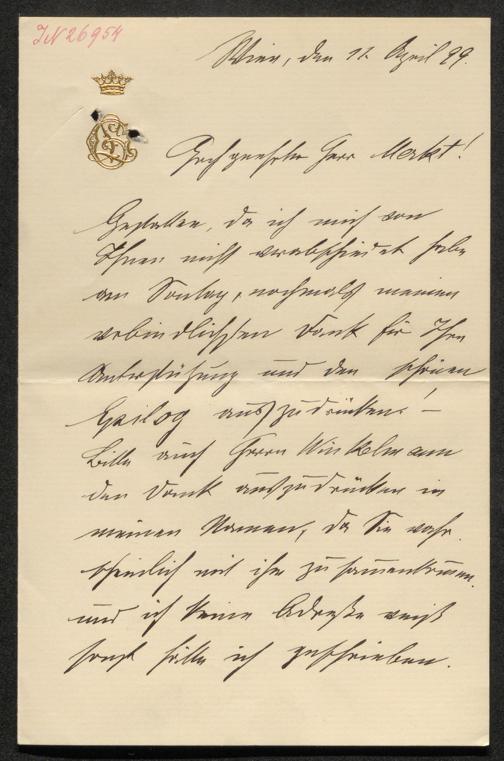 IN 26954
Wien, den 12. April 99.
Hochgeehrter Herr Merkt!
Gestatten, da ich mich von
Ihnen nicht verabschiedet habe
am Sontag, nochmals meinen
verbindlichsten Dank für Ihre
Unterstützung und den schönen
Epilog auszudrücken! –
Bitte auch Herrn Winkelmann
den Dank auszudrücken in
meinem Namen, da Sie wahr-
scheinlich mit ihm zusammenkommen.
und ich keine Adreße weiß
sonst hätte ich geschrieben.